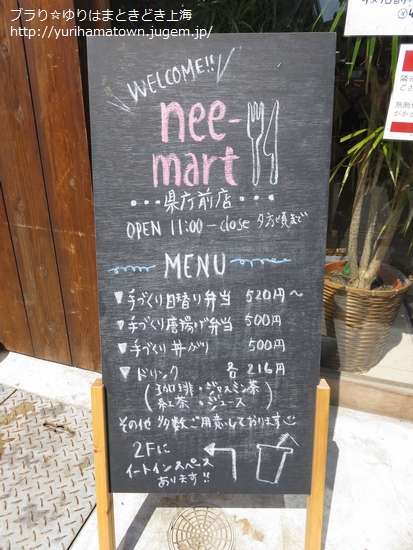 ブラり☆ゆりはまときどき上海
http://yurihamatown.jugem.jp/
WELCOME!!
nee-
mart
・・・県庁前店・・・
OPEN 11:00 - close 夕方頃まで
MENU
▼手づくり日替り弁当 520円〜
▼手づくり唐揚げ弁当 500円
▼手づくり丼ぶり 500円
▼ドリンク 各216円
(珈琲・ジャスミン茶
紅茶・ジュース)
その他 多数ご用意しております
2Fに
イートインスペース
あります!!